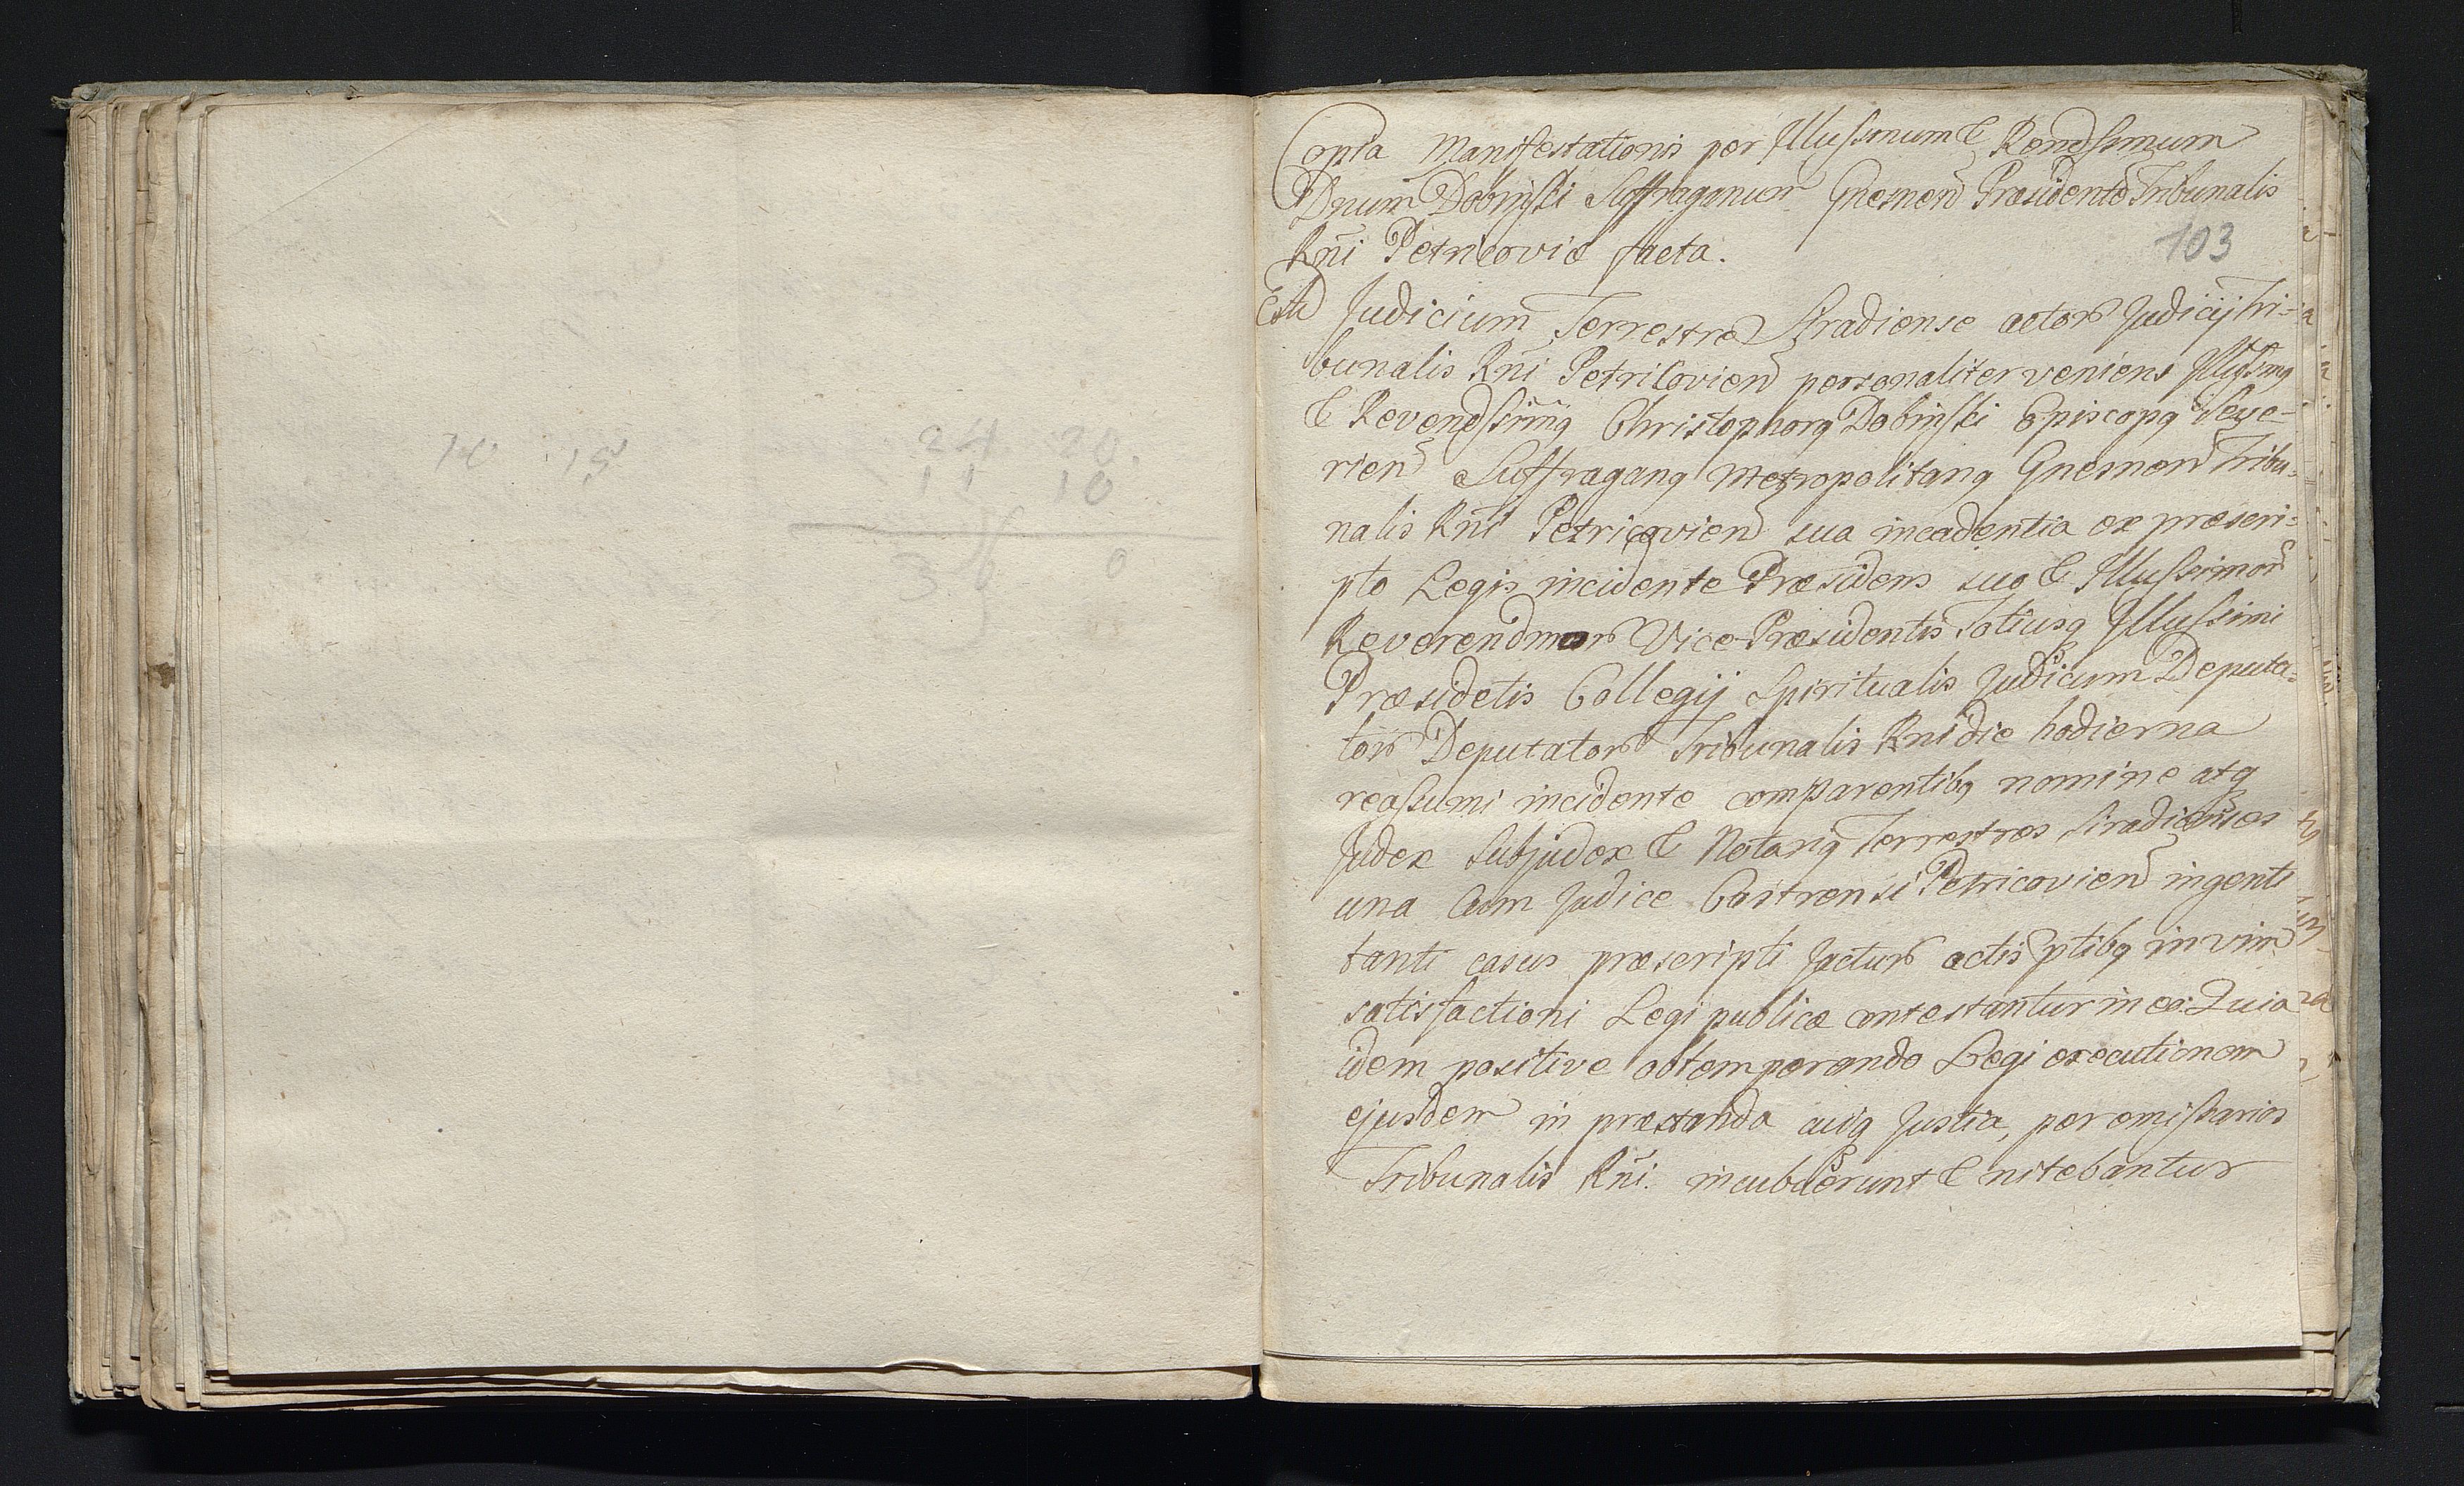 10 15
24 20.
11 10
36 0
Copia Manifestationis per Illussimum & Rendssimum
Dnum Dobinski Suffraganeum Gnesnen Præsidente Tribunalis
103
Rñi Petricoviæ facta.
Judicium Terrestre Siradiense actor Judicij Tri-
bunalis Rñi Petricovien personaliter veniens Illussimq
& Revendssimq Christophorq Dobinski Episcopq Seye-
rien Suffraganq Metropolitanq Gnesnen Tribu-
nalis Rñi Petricovien sua incadentia ex præscri-
pto Legis incidente Præsidens suo & Illussimor
Reverendmor Vice-Præsidentis Totiusq Illussimi
Præsidetis Collegij Spiritualis Judicum Deputa-
tor Deputator Tribunalis Rni die hodierna
reassumi incidente comparentibq nomine atq
Judex Subjudex & Notariq Terrestres Siradienses
una Cum Judice Castrensi Petricovien ingenti
tanti casus præscripti jactur actis ptibq in vim
satisfactioni Legi publicæ contestantur in eo: Quia
idem positive obtemperando Legi executionem
ejusdem in præstanda cuiq Justia, per emissarios
Tribunalis Rñi. incubuerunt & nitebantur